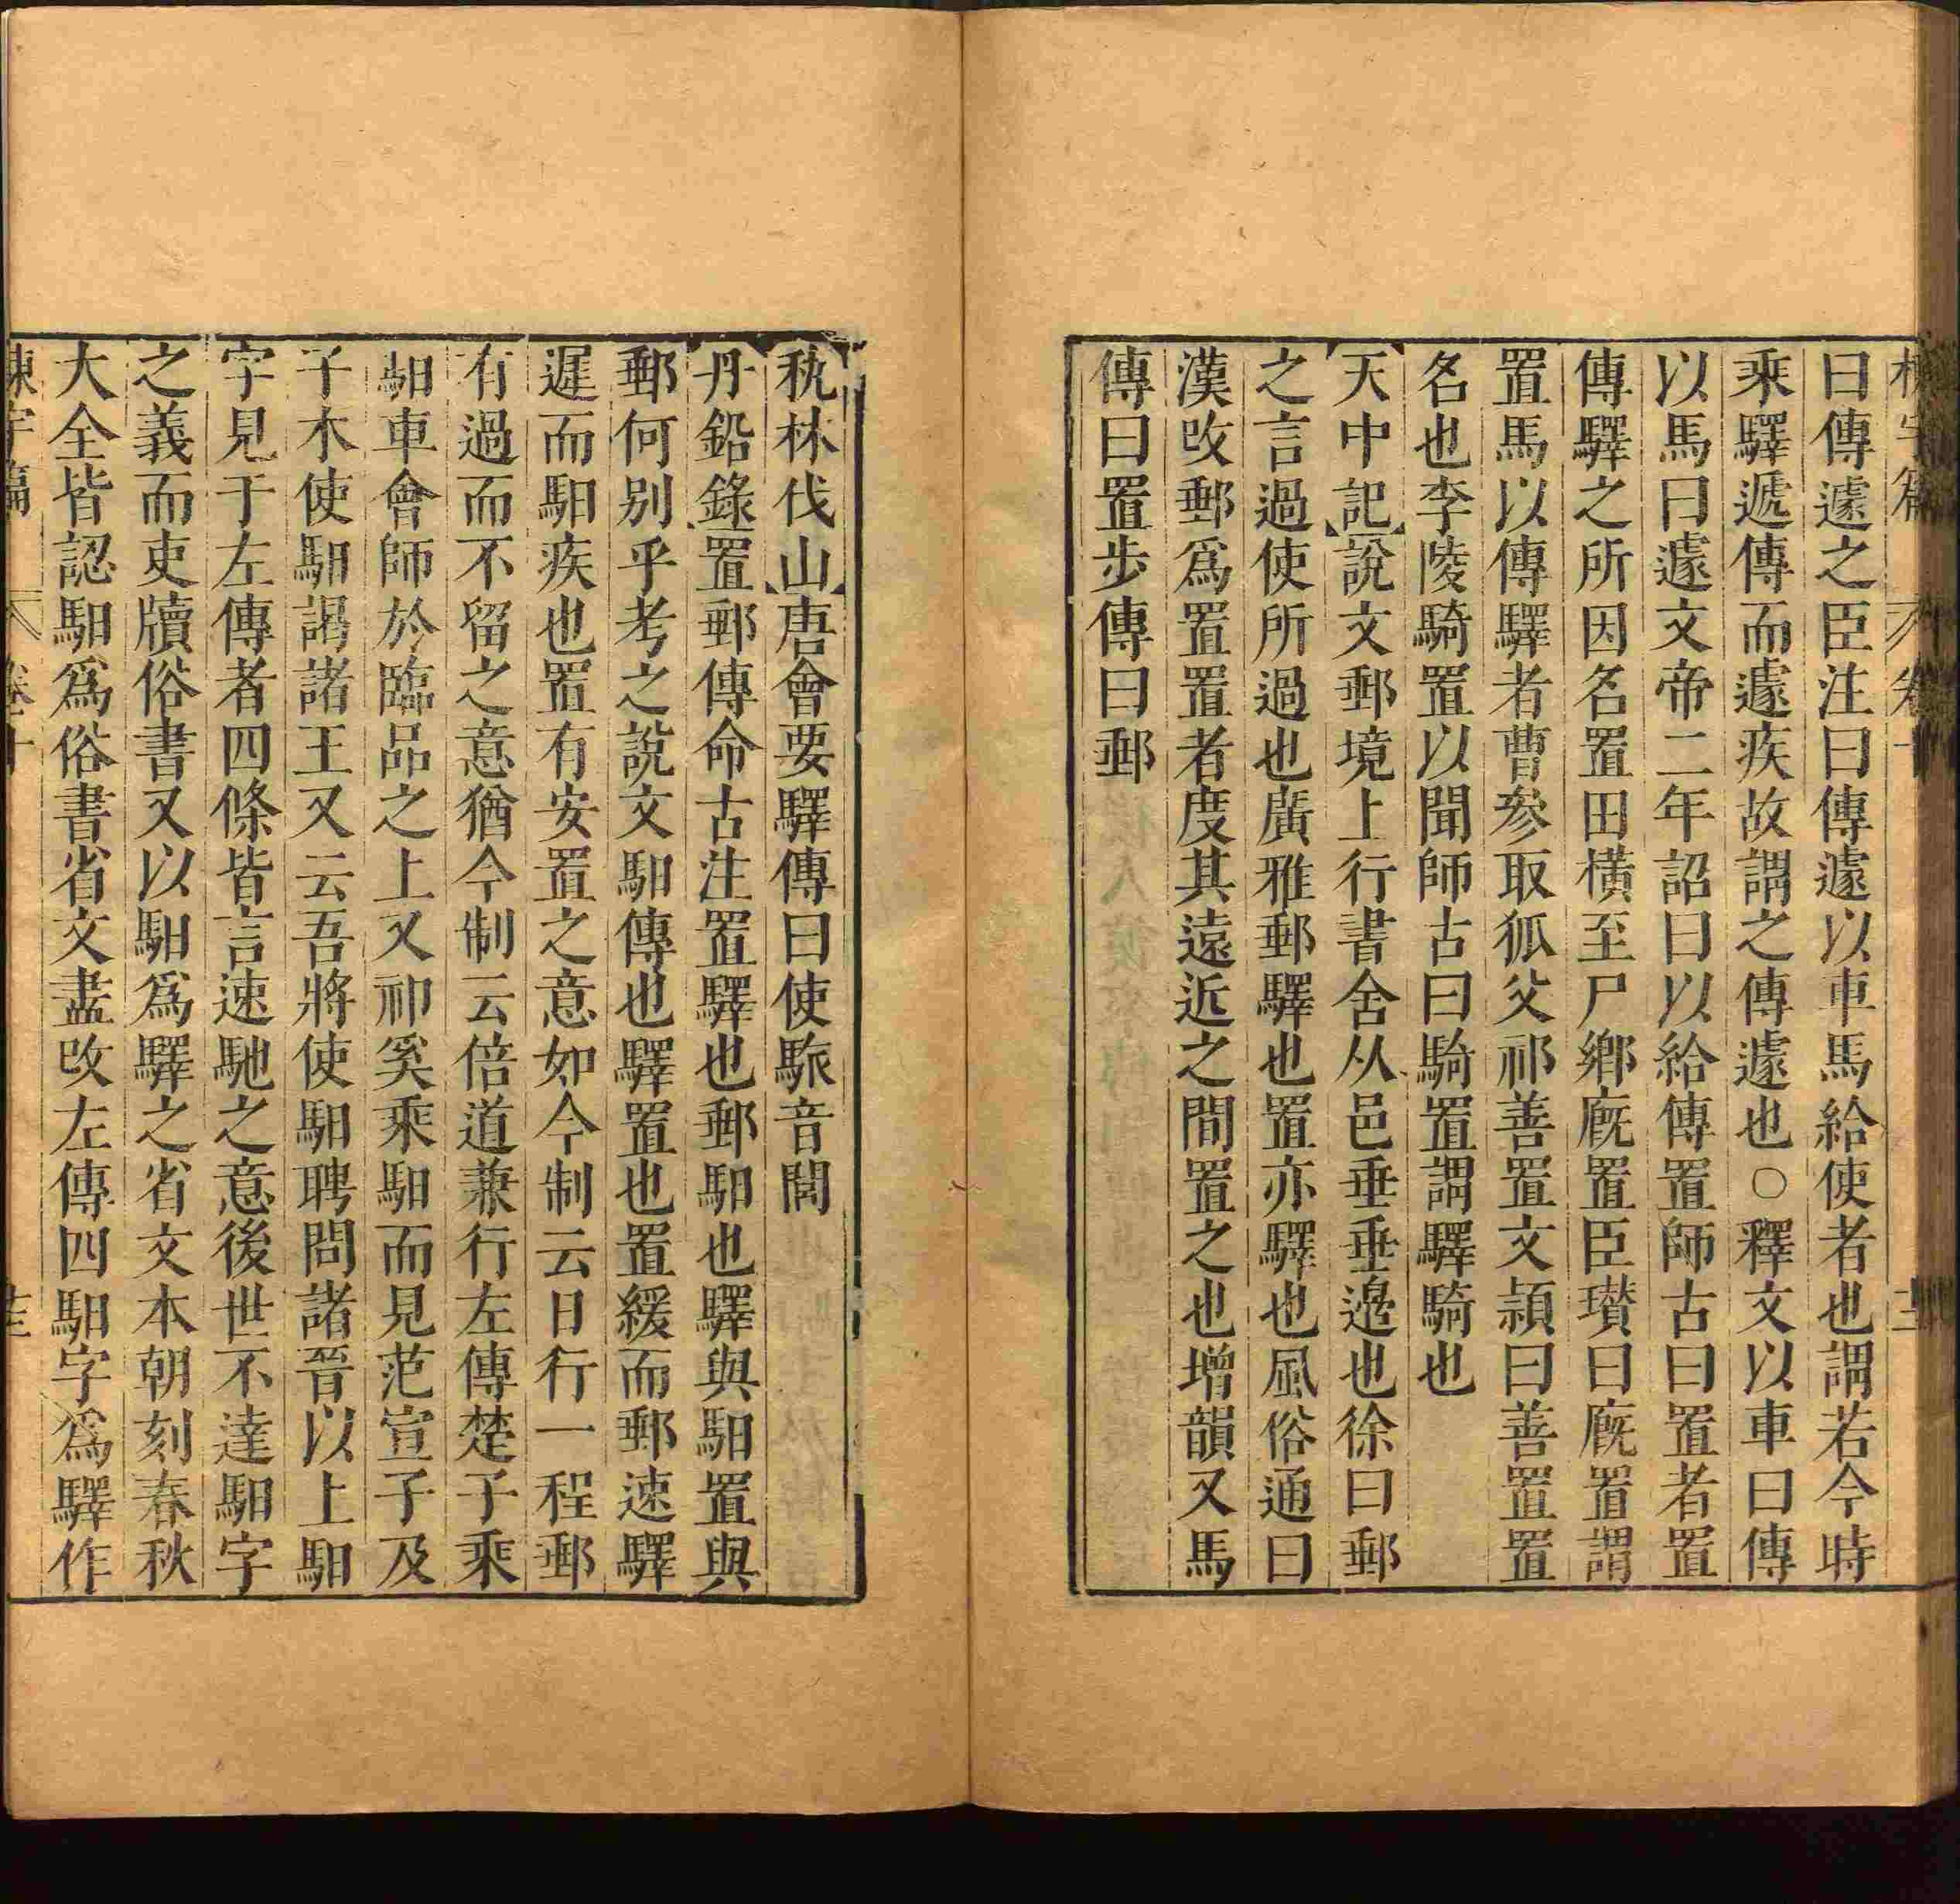 曰傳遽之臣注曰傳遽以車馬給使者也謂若今時
乘驛遞傳而遽疾故謂之傳遽也○釋文以車曰傳
以馬曰遽文帝二年詔曰以給傳置師古曰置者置
傳驛之所因名置田橫至尸鄉廐置臣瓚曰廐置謂
置馬以傳驛者曹參取狐父祁善置文穎曰善置置
名也李陵騎置以聞師古曰騎置謂驛騎也
天中記說文郵境上行書舍从邑垂垂邊也徐曰郵
之言過使所過也廣雅郵驛也置亦驛也風俗通曰
漢改郵爲置置者度其遠近之間置之也增韻又馬
傳曰置步傳曰郵
秇林伐山唐會要驛傳曰使駅音閻
丹鉛錄置郵傳命古注置驛也郵馹也驛與馹置與
郵何別乎考之說文馹傳也驛置也置緩而郵速驛
遲而馹疾也置有安置之意如今制云日行一程郵
有過而不留之意猶今制云倍道兼行左傳楚子乘
馹車會師於臨品之上又祁奚乘馹而見范宣子及
子木使馹謁諸王又云吾將使馹聘問諸晉以上馹
字見于左傳者四條皆言速馳之意後世不達馹字
之義而吏牘俗書又以馹爲驛之省文本朝刻春秋
大全皆認馹爲俗書省文盡改左傳四馹字爲驛作